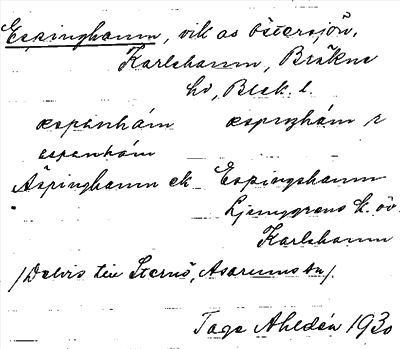 Espinghamn, vik av Östersjön,
Karlshamn, Bräkne
hd, Blek. l.
espenhámn
Äspinghamn ek Espingshamn
Ljunggrens k. öv.
Karlshamn
/Delvis till Sternö, Asarums sn/.
Tage Ahldén 1930